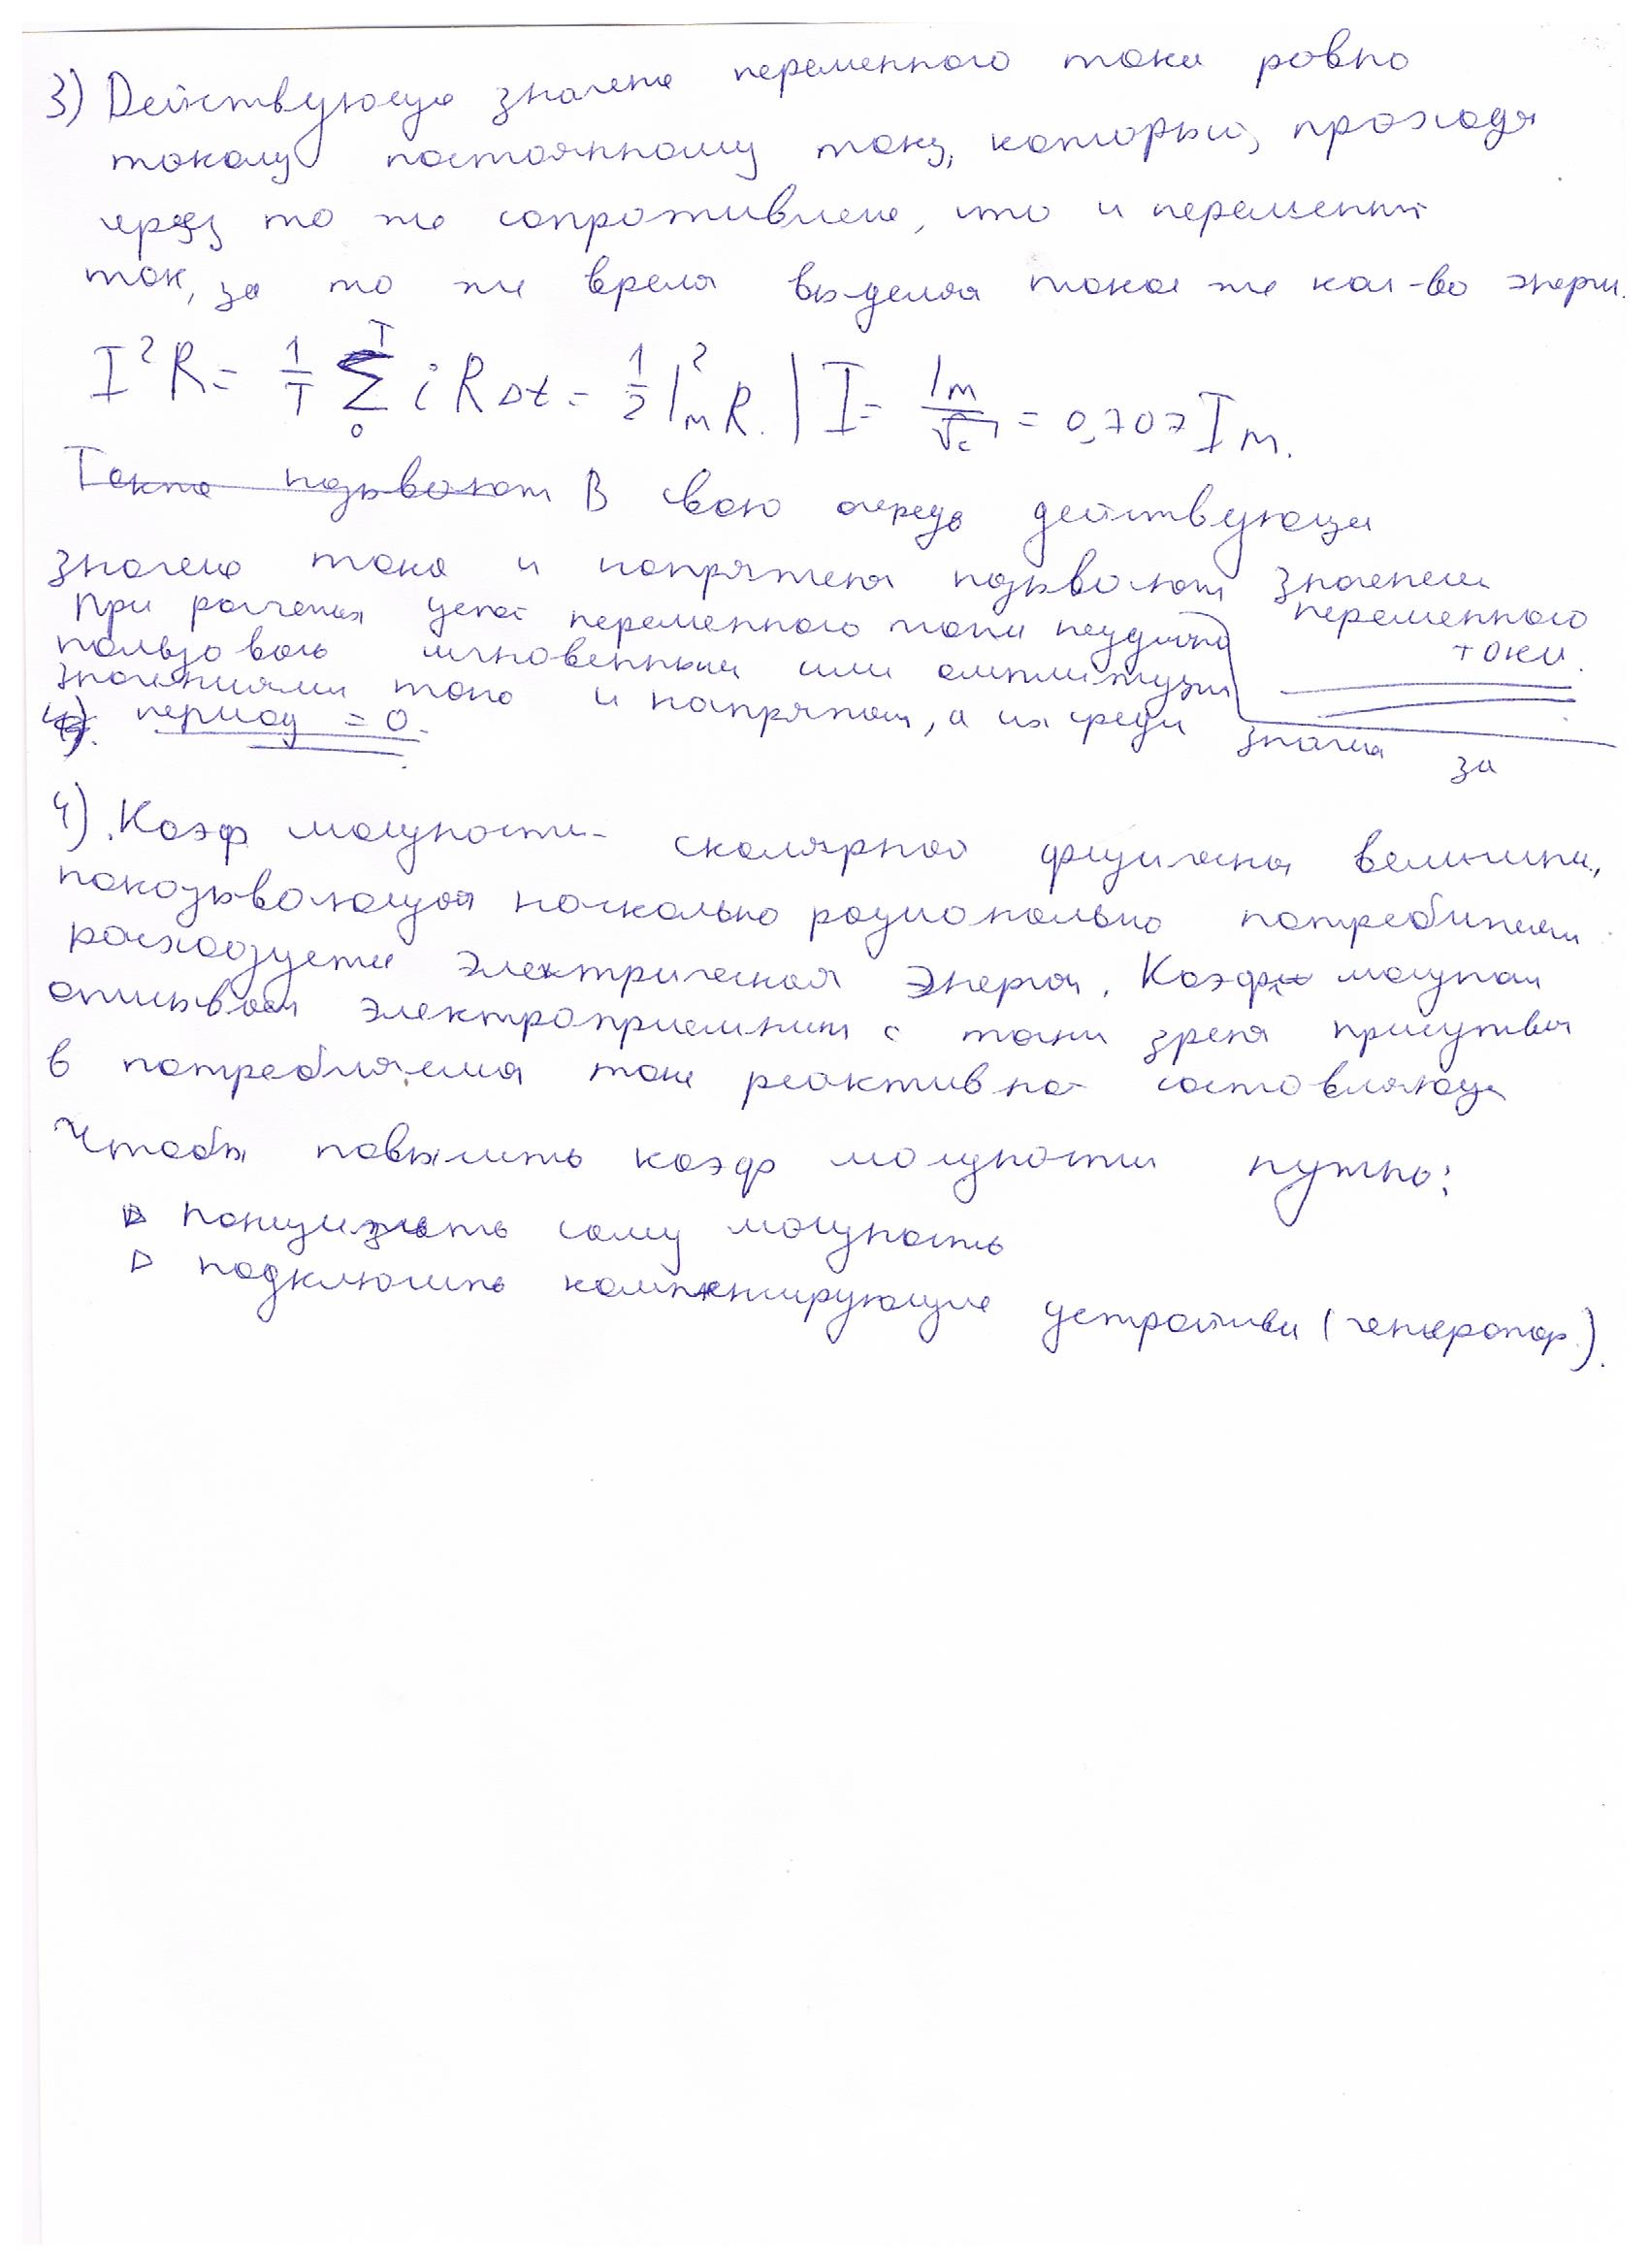 3) Действующе значене переменного тока ровно
такому постоянному току, который, проходя
через то же сопротивлене, что и переменный
ток, за то же время выделяя такое же кол-во энерги.
I²R = 1/T Σ₀ᵀ i R Δt = 1/2 I²ₘR. | I = Iₘ/√2 = 0,707 Iₘ.
Также называют В свою очередь действующи
значене тока и напряжена называют значенем
переменного
тока.
При расчетах цепей переменного тока неудобно
пользовась мгновенными или амплитудн
значениями тока и напряжен, а их средн
значена
за
период = 0.
4). Коэф мощности - скалярная физическа величина,
показывающая насколько рационально потребителем
расходуется электрическая энергия. Коэф мощност
описывает электроприемник с точки зрена присутвия
в потребляемом токе реактивной составляюще
Чтобы повысить коэф мощности нужно:
▷ саму мощность
▷ подключить компенсирующие устройства (генератор.).